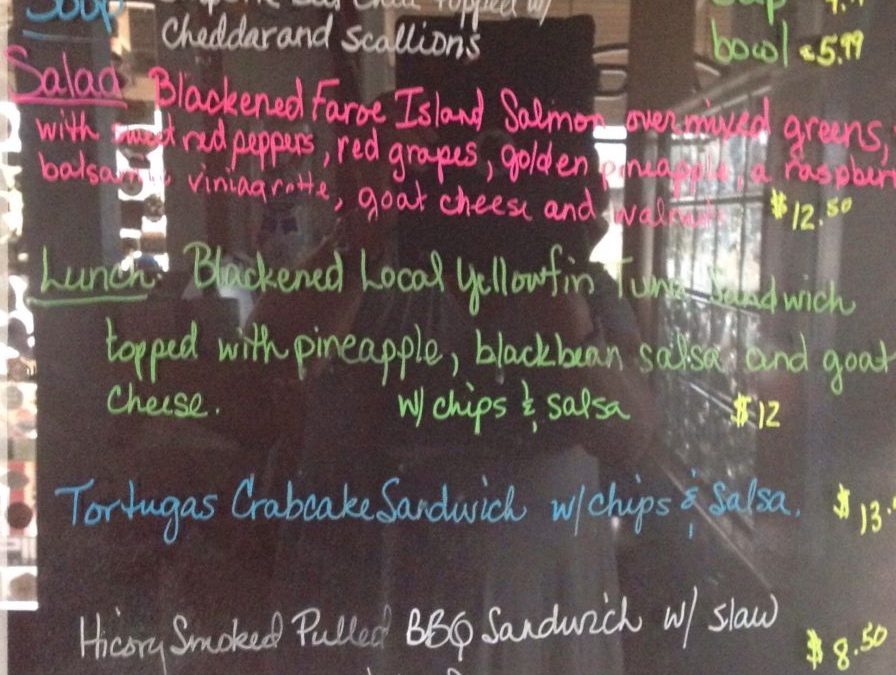 Soup
topped w/
Cheddar and Scallions
bowl 5.99
Salad Blackened Faroe Island Salmon over mixed greens,
with sweet red peppers, red grapes, golden pineapple, a raspberr
balsamic viniagrotte, goat cheese and walnuts $12.50
Lunch Blackened Local Yellowfin Tuna Sandwich
topped with pineapple, blackbean salsa and goat
cheese. w/ chips & salsa $12
Tortugas Crabcake Sandwich w/ chips & Salsa. $13.
Hicory Smoked Pulled BBQ Sandwich w/ slaw
$8.50